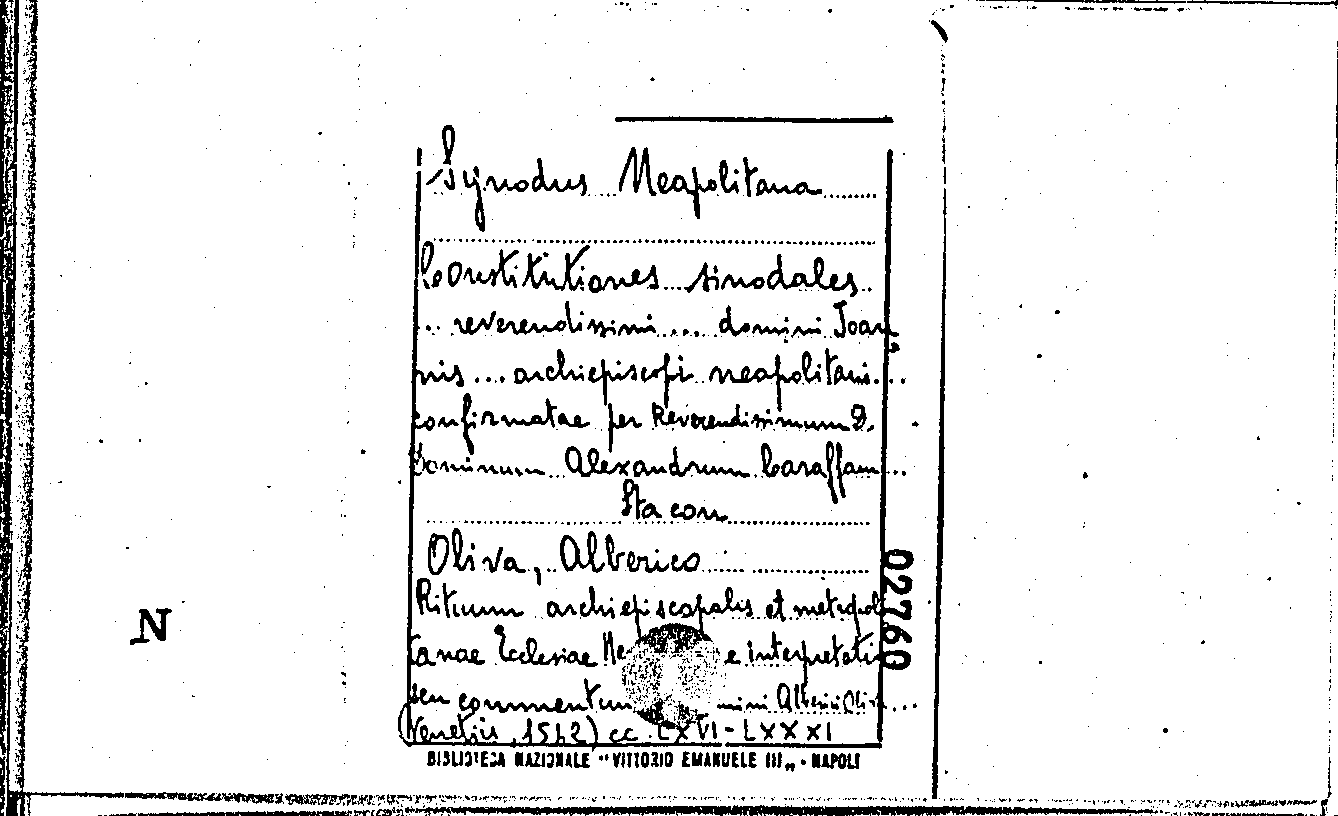 Synodus Neapolitana
Constitutiones sinodales
... reverendissimi .... domini Joan
nis ... archiepiscopi neapolitani...
confirmatae per Reverendissimum D.
Dominum Alexandrum Caraffam ...
Sta con
Oliva, Alberico
Rituum archiepiscopalis et metropoli
tanae Ecclesiae e interpretati
seu commentum Alberici Oliva ...
(Venetiis, 1542) cc. LXVI - LXXXI
BIBLIOTECA NAZIONALE "VITTORIO EMANUELE III„ - NAPOLI
02760
N